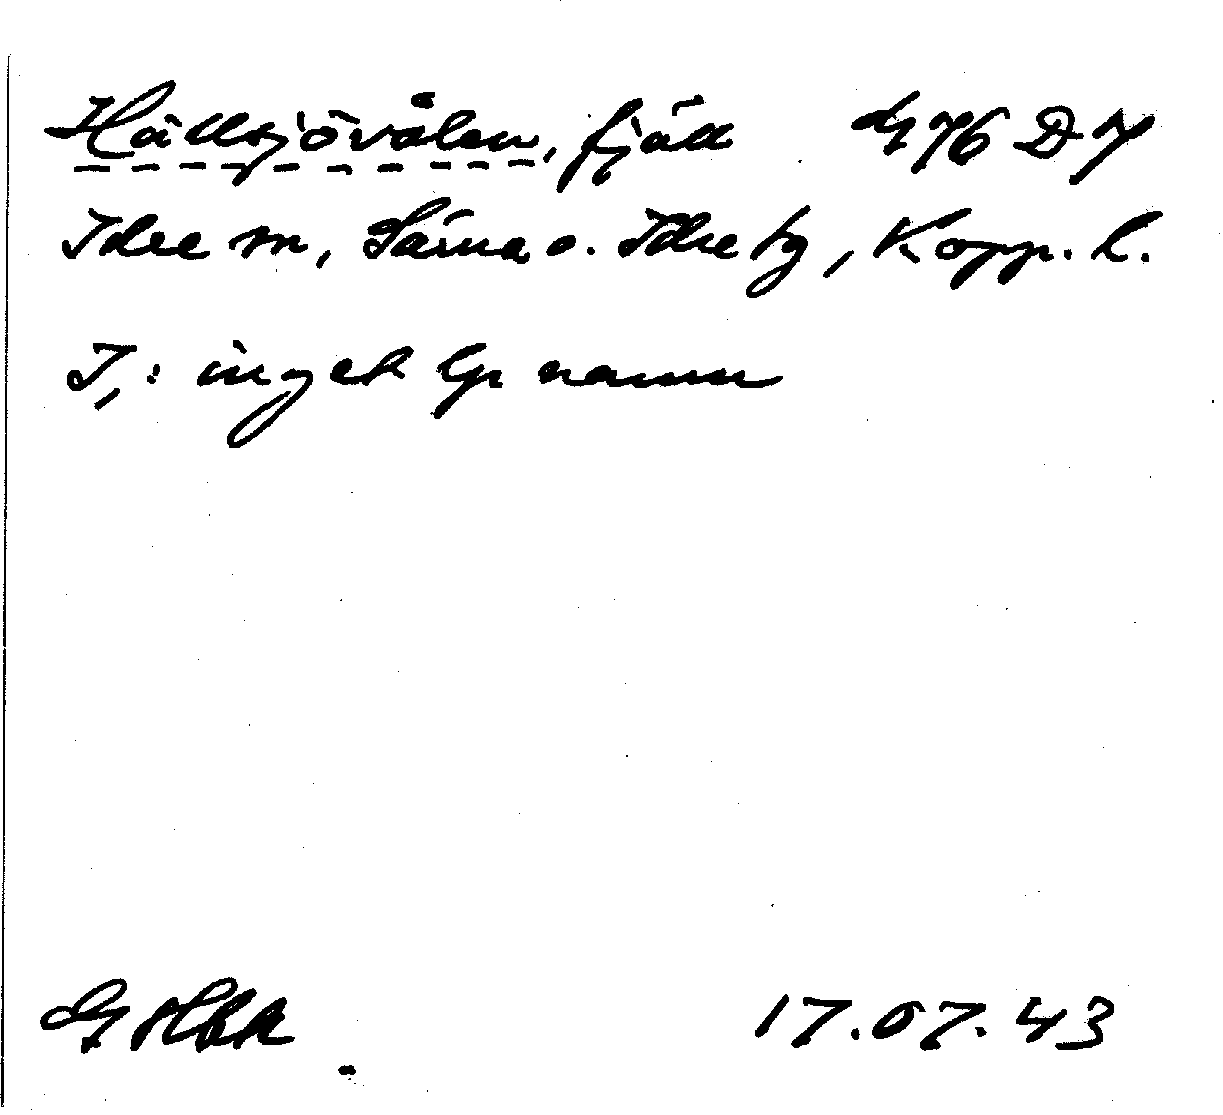 Hällsjövålen, fjäll G 76 D 7
Idre sn, Särna o. Idre tg, Kopp. l.
I,: inget lp namn
G Hbk 17.07.43